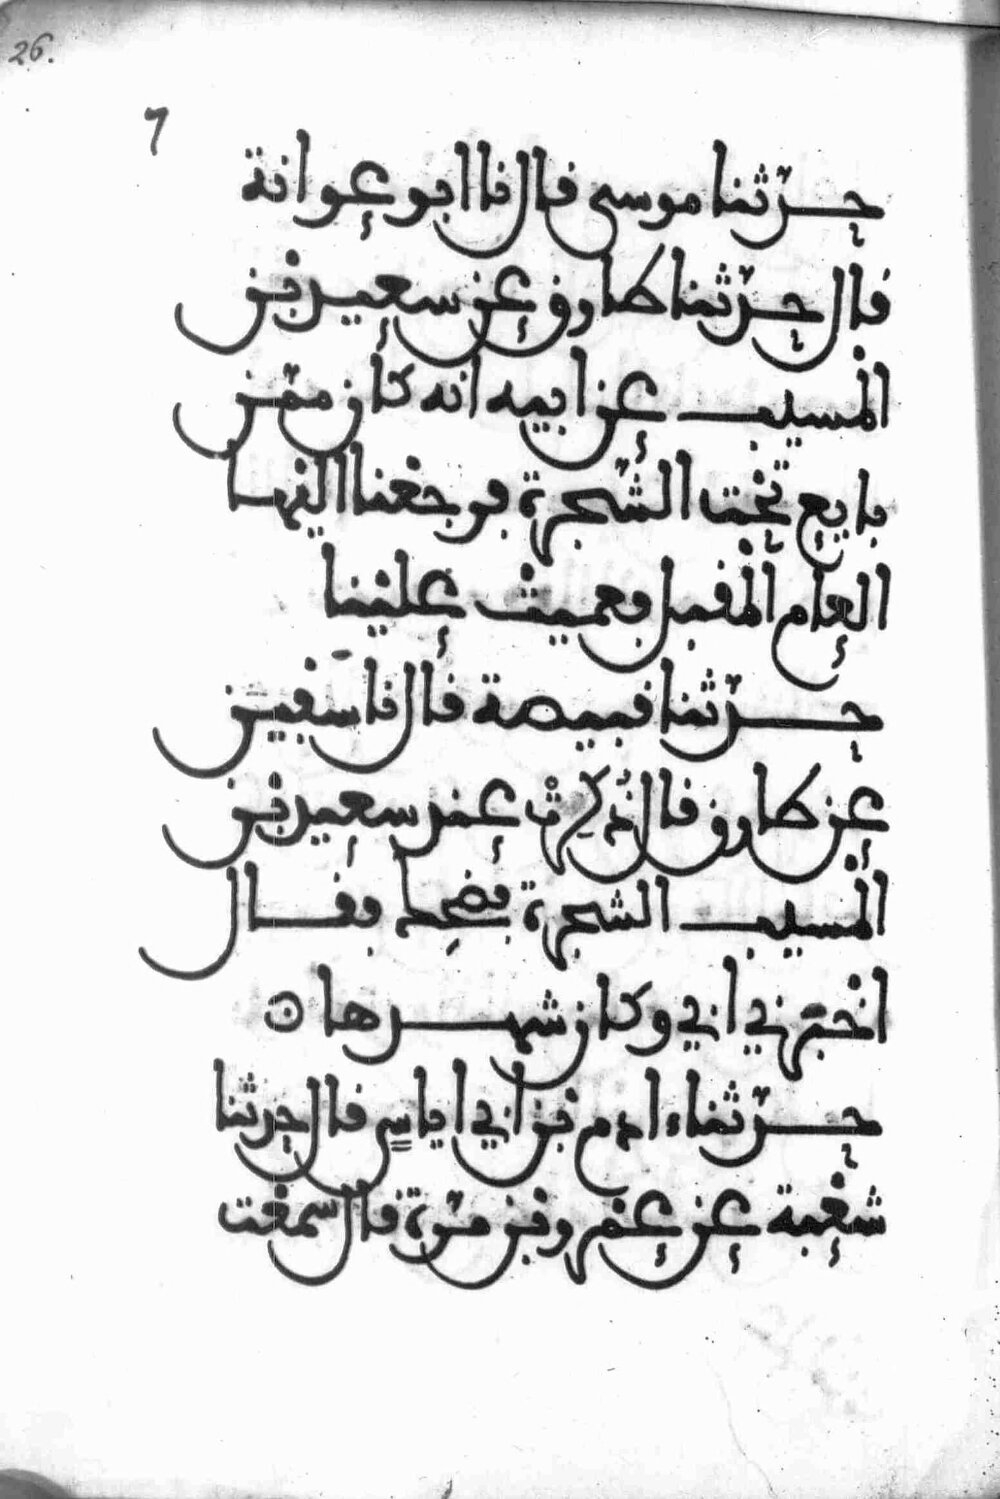 26.
7
حدّثنا موسى قال نا ابو عوانة
قال حدّثنا طارق عن سعيد بن
المسيب عن ابيه انه كان ممّن
بايع تحت الشّجرة فرجعنا اليها
العام المقبل فعميت علينا
حدّثنا قبيصة قال نا سفين
عن طارق قال ذُكِرتْ عند سعيد بن
المسيب الشجرة فضحك فقال
اخبرني ابي وكان شهدها ن
حدّثنا ءادم بن ابي اياس قال حدثنا
شعبة عن عمرو بن مرّة قال سمعت